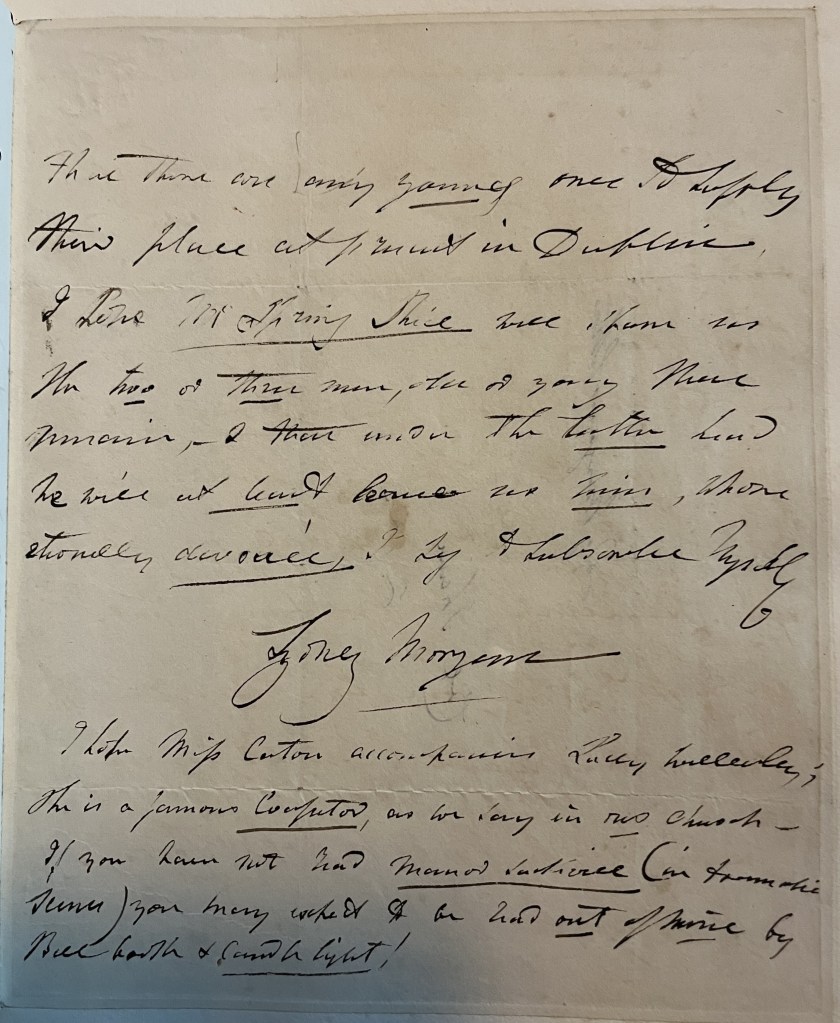 there are any young once to supply
their place at present in Dublin.
I hope Mr Spring Rice will have us
the two or three men, old or young there
remain, - & that under the latter head
he will at least leave us him, whose
devouée, I beg to subscribe myself
Sydney Morgan
I hope Miss Caton accompanies Lady Wellesley;
She is a famous Coajutor, as we say in our church -
If you have not had Manor Sackville (in dramatic
scenes) you may expect to be read out of mine by
Bell book & candle light!